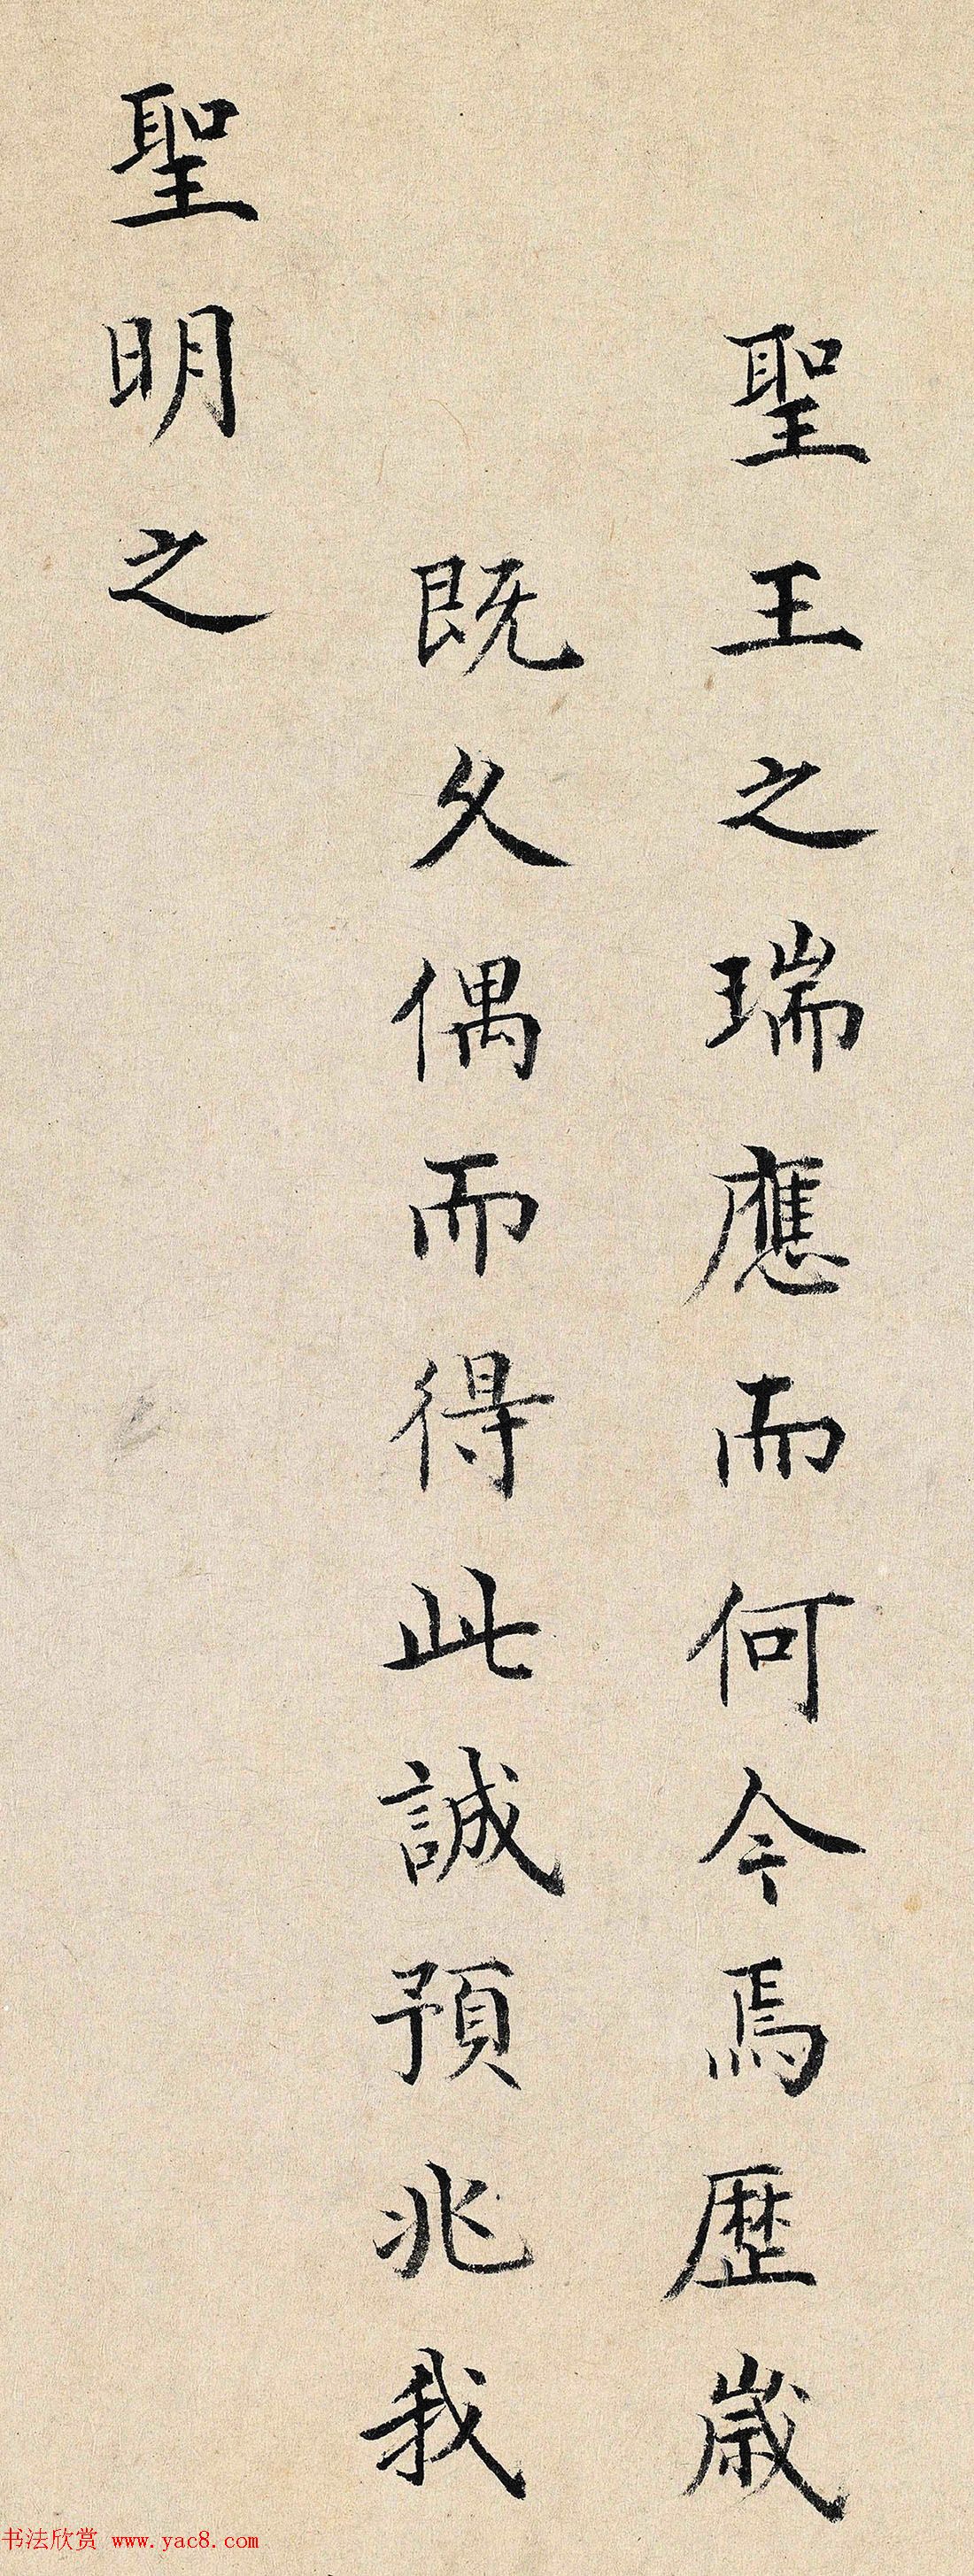 聖王之瑞應而何今焉歷歳
既久偶而得此誠預兆我
聖明之
书法欣赏 www.yac8.com